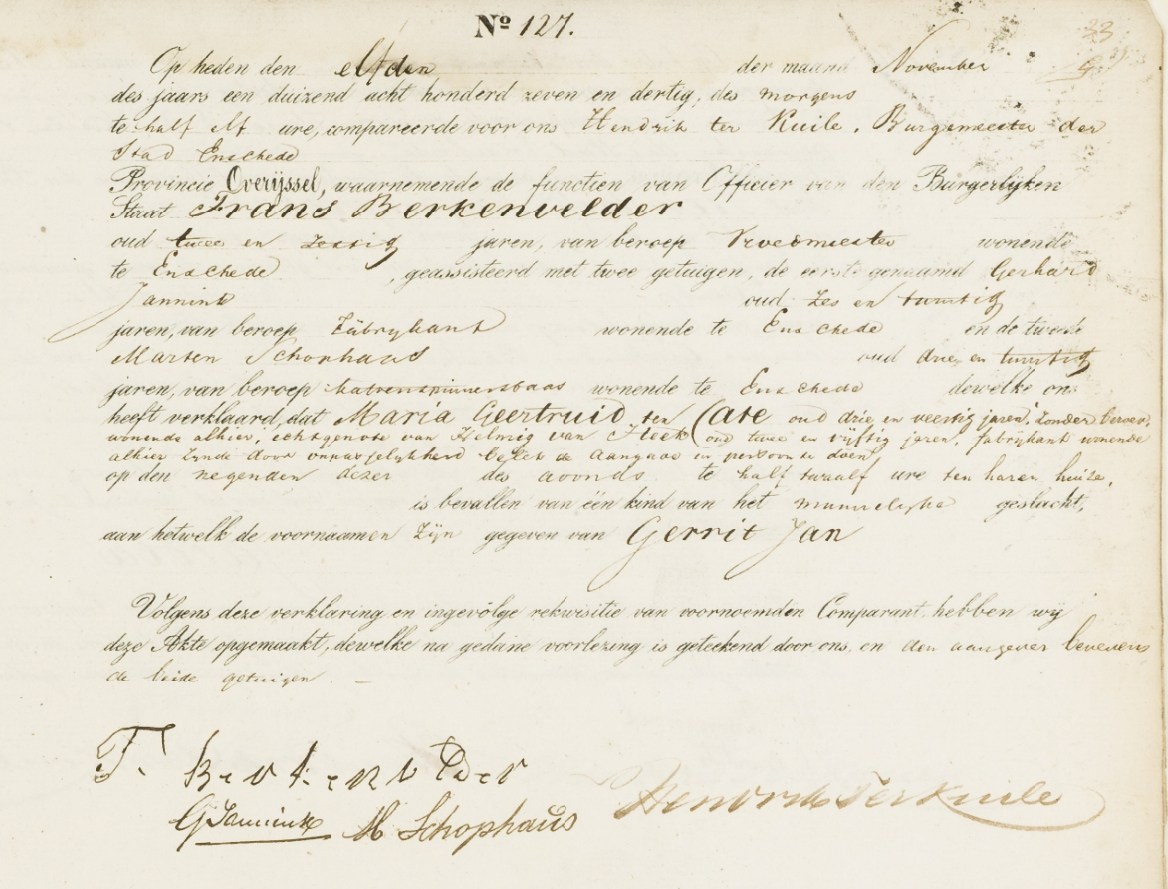 No 127.
23
Op heden den elfden der maand November
des jaars een duizend acht honderd zeven en dertig, des morgens
te half elf ure, compareerde voor ons Hendrik ter Kuile, Burgemeester der
Stad Enschede
Provincie Overijssel, waarnemende de functien van Officier van den Burgerlijken
Staat Frans Berkenvelder
oud twee en zestig jaren, van beroep Vroedmeester wonende
te Enschede, geassisteerd met twee getuigen, de eerste genaamd Gerhard
Jannink oud zes en twintig
jaren, van beroep Fabrijkant wonende te Enschede en de tweede
Marten Schophaus oud drie en twintig
jaren, van beroep katoenspinnersbaas wonende te Enschede dewelke ons
heeft verklaard, dat Maria Geertruid ten Cate oud drie en veertig jaren, zonder beroep,
wonende alhier, echtgenote van Helmig van Heek (oud twee en vijftig jaren, fabrijkant wonende
alhier zijnde door belet de aangave in persoon te doen)
op den negenden dezer des avonds te half twaalf ure ten haren huize,
is bevallen van één kind van het mannelijke geslacht,
aan hetwelk de voornaamen zijn gegeven van Gerrit Jan
Volgens deze verklaring en ingevolge rekwisitie van voornoemden Comparant hebben wij
deze Akte opgemaakt, dewelke na gedane voorlezing is geteekend door ons, en den aangever benevens
de beide getuigen. —
F. Berkenvelder
G Jannink M Schophaus Hendrik ter Kuile